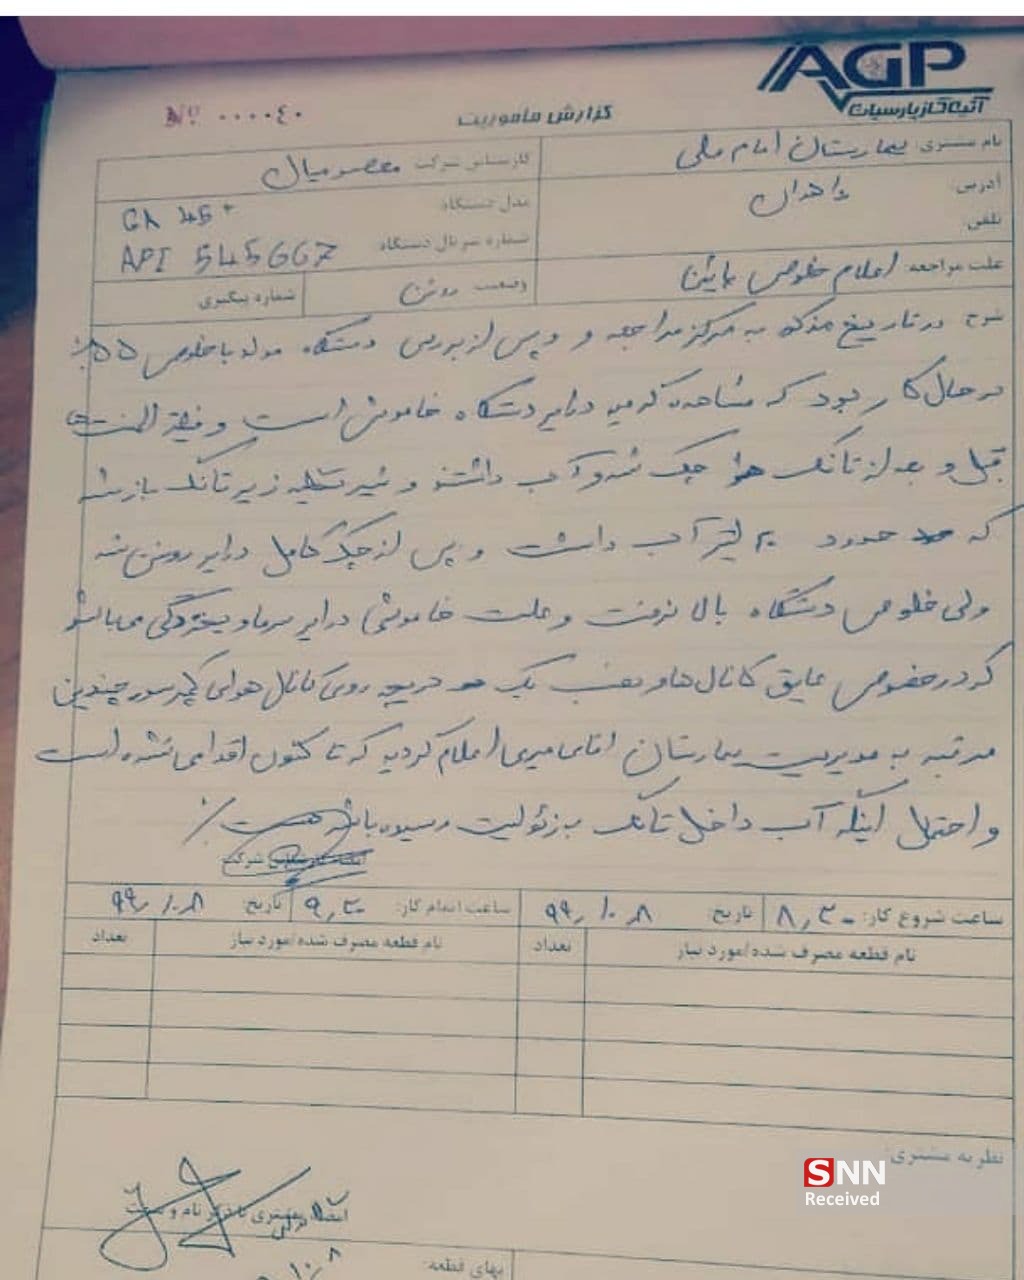 AGP
آتیه گاز پارسیان
گزارش ماموریت
Nº ۰۰۰۰۴۰
نام مشتری: بیمارستان امام علی
کارشناس شرکت
آدرس: زاهدان
تلفن:
مدل دستگاه: GA 45+
شماره سریال دستگاه: API 545667
علت مراجعه: اعلام خلوص پائین
وضعیت روشن
شماره پیگیری
شرح در تاریخ مذکور به مرکز مراجعه و پس از بررسی دستگاه مولد با خلوص ۵۵٪
در حال کار بود که مشاهده کردیم درایر دستگاه خاموش است و فیلتر المنت ها
قبل و بعد از تانک هوا چک شد و آب داشتند و شیر تخلیه زیر تانک باز شد
که حدود ۲۰ لیتر آب داشت و پس از چک کامل درایر روشن شد
ولی خلوص دستگاه بالا نرفت و علت خاموشی درایر سرما و یخزدگی می باشد
که در خصوص عایق کانال ها و نصب یک دریچه روی کانال هوای کمپرسور چندین
مرتبه به مدیریت بیمارستان آقای میری اعلام کردیم که تا کنون اقدامی نشده است
و احتمال اینکه آب داخل تانک به زئولیت رسیده باشد هست
امضاء کارشناس شرکت
ساعت شروع کار: ۸,۳۰ تاریخ: ۹۹,۱۰,۸
ساعت اتمام کار: ۹,۳۰ تاریخ: ۹۹,۱۰,۸
نام قطعه مصرف شده/مورد نیاز تعداد
نام قطعه مصرف شده/مورد نیاز تعداد
نظریه مشتری:
SNN
Received
امضاء مشتری با ذکر نام و سمت
بهای قطعه: